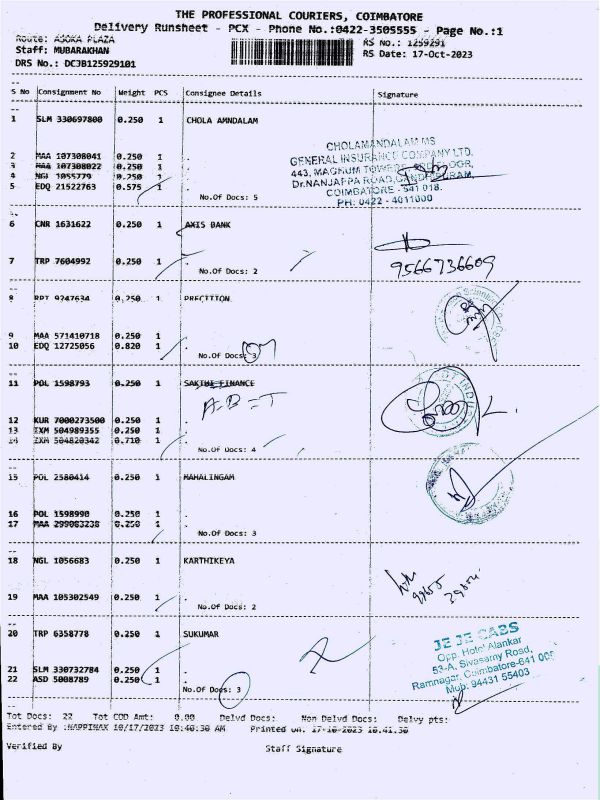 THE PROFESSIONAL COURIERS, COIMBATORE
Delivery Runsheet - PCX - Phone No.:0422-3505555 - Page No.:1
Route: ASOKA PLAZA
Staff: MUBARAKHAN
DRS No.: DCJB125929101
RS No.: 1259291
RS Date: 17-Oct-2023
S No Consignment No Weight PCS Consignee Details Signature
1 SLM 330697800 0.250 1 CHOLA AMNDALAM
2 MAA 107308041 0.250 1 .
3 MAA 107308022 0.250 1 .
4 NGL 1055779 0.250 1 .
5 EDQ 21522763 0.575 1 .
No.Of Docs: 5
CHOLAMANDALAM MS
GENERAL INSURANCE COMPANY LTD.
443, MAGNUM TOWERS, FLOOR,
Dr.NANJAPPA ROAD, GANDHIPURAM,
COIMBATORE - 641 018.
PH: 0422 - 4011000
6 CNR 1631622 0.250 1 AXIS BANK
7 TRP 7604992 0.250 1 .
No.Of Docs: 2
9566736609
8 RPT 9247634 0.250 1 PRECITION
9 MAA 571410718 0.250 1 .
10 EDQ 12725056 0.820 1 .
No.Of Docs: 3
11 POL 1598793 0.250 1 SAKTHI FINANCE
A.B=T
12 KUR 7000273500 0.250 1 .
13 IXM 504989355 0.250 1 .
14 IXM 504820342 0.710 1 .
No.Of Docs: 4
15 POL 2580414 0.250 1 MAHALINGAM
16 POL 1598990 0.250 1 .
17 MAA 299083238 0.250 1 .
No.Of Docs: 3
18 NGL 1056683 0.250 1 KARTHIKEYA
19 MAA 105302549 0.250 1 .
No.Of Docs: 2
20 TRP 6358778 0.250 1 SUKUMAR
21 SLM 330732784 0.250 1 .
22 ASD 5008789 0.250 1 .
No.Of Docs: 3
JE JE CABS
Opp. Hotel Alankar
53-A, Sivasamy Road,
Ramnagar, Coimbatore-641 009
Mob: 94431 55403
Tot Docs: 22 Tot COD Amt: 0.00 Delvd Docs: Non Delvd Docs: Delvy pts:
Entered By :HAPPIMAX 10/17/2023 10:40:30 AM Printed on: 17-10-2023 10.41.30
Verified By Staff Signature